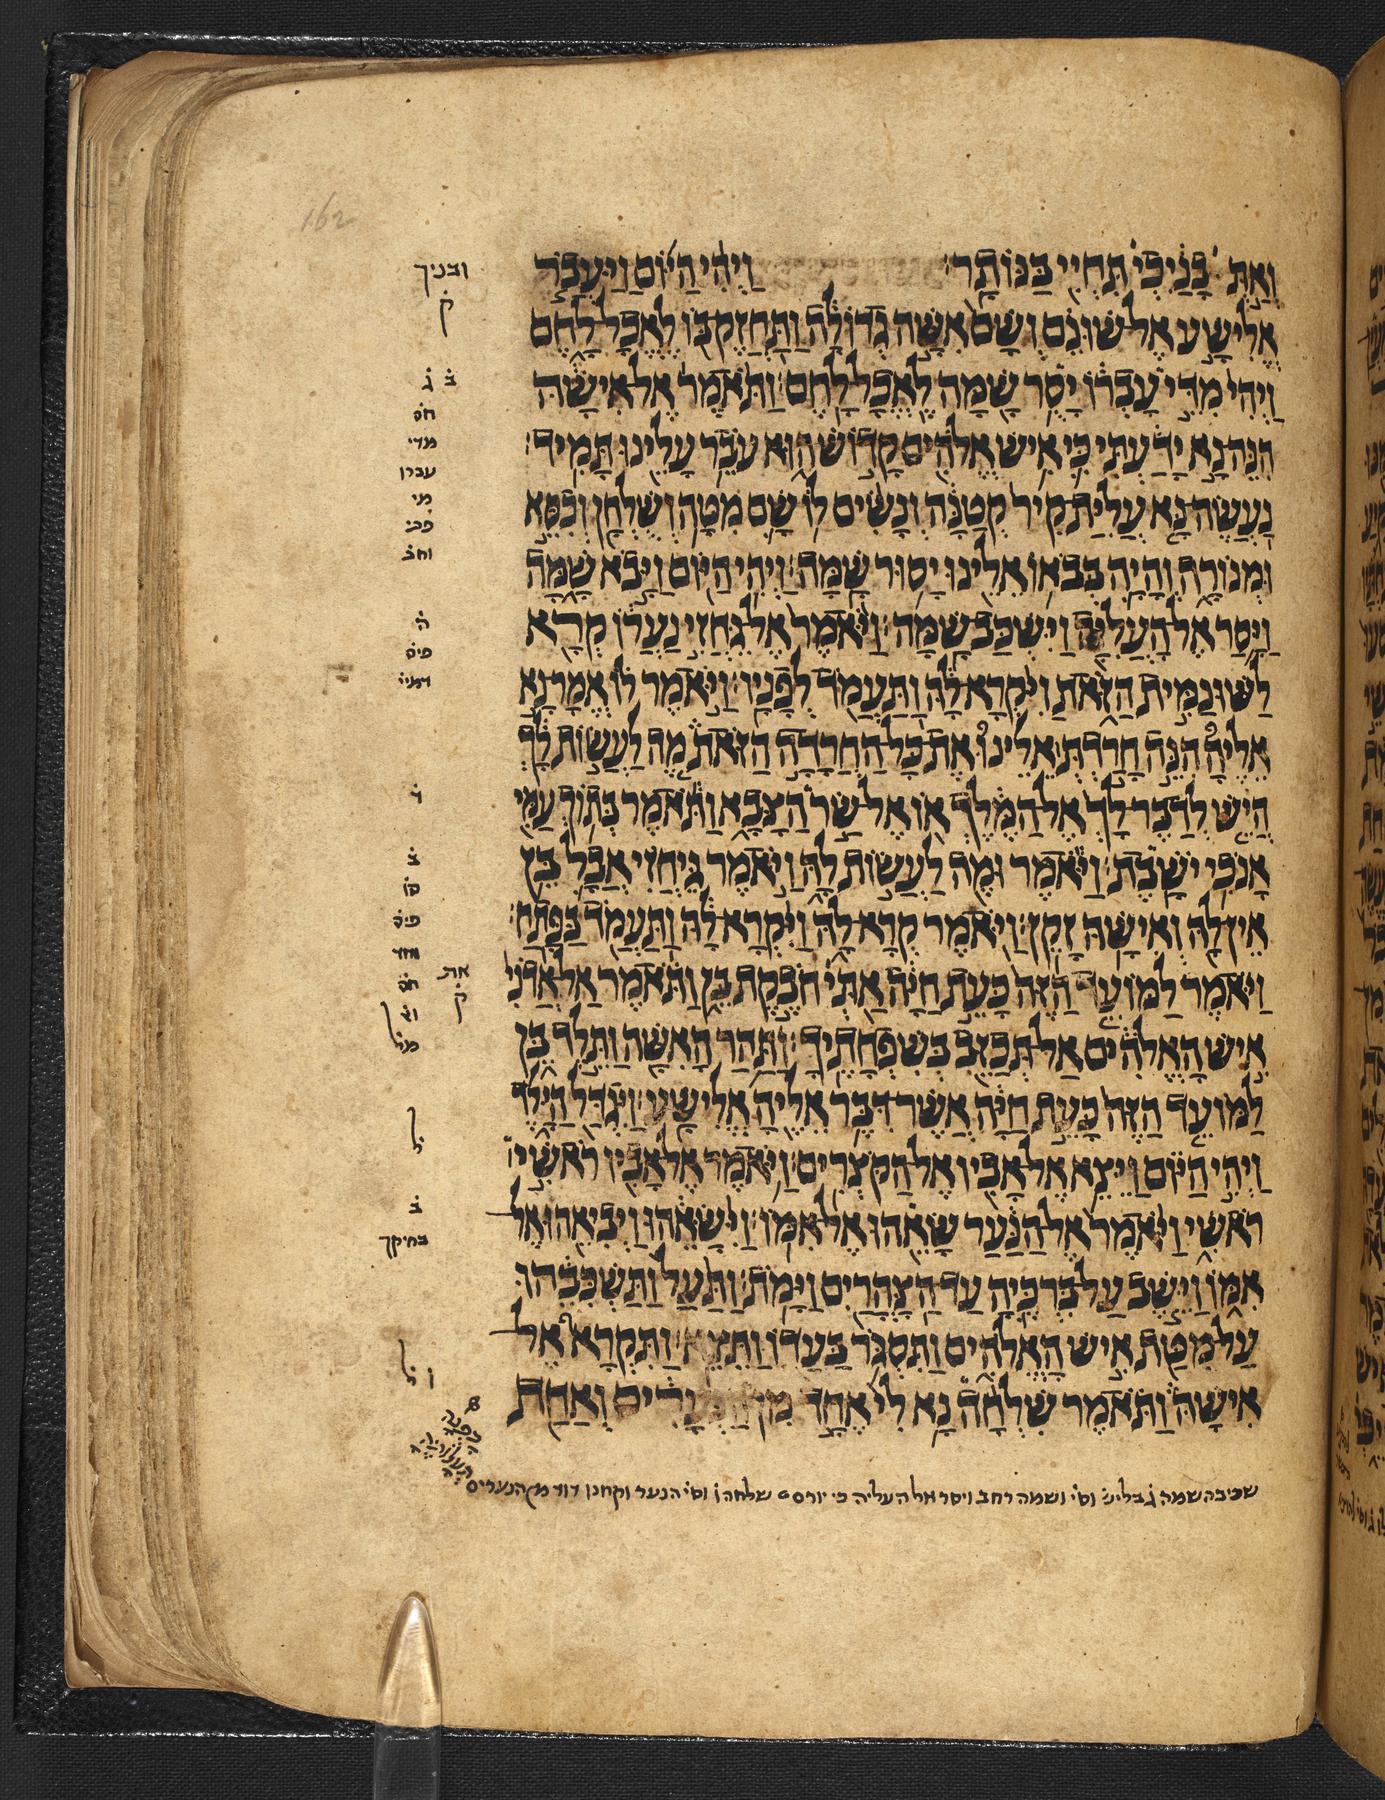 162
וְאַתְּ בָּנַיִכִי תִּחְיִי בַּנּוֹתָר׃ וַיְהִי הַיּוֹם וַיַּעֲבֹר
ובניך
ק
אֱלִישָׁע אֶל שׁוּנֵם וְשָׁם אִשָּׁה גְדוֹלָה וַתַּחֲזֶק בּוֹ לֶאֱכָל לָחֶם
וַיְהִי מִדֵּי עָבְרוֹ יָסֻר שָׁמָּה לֶאֱכָל לָחֶם׃ וַתֹּאמֶר אֶל אִישָׁהּ
הִנֵּה נָא יָדַעְתִּי כִּי אִישׁ אֱלֹהִים קָדוֹשׁ הוּא עֹבֵר עָלֵינוּ תָּמִיד׃
נַעֲשֶׂה נָּא עֲלִיַּת קִיר קְטַנָּה וְנָשִׂים לוֹ שָׁם מִטָּה וְשֻׁלְחָן וְכִסֵּא
וּמְנוֹרָה וְהָיָה בְּבֹאוֹ אֵלֵינוּ יָסוּר שָׁמָּה׃ וַיְהִי הַיּוֹם וַיָּבֹא שָׁמָּה
וַיָּסַר אֶל הָעֲלִיָּה וַיִּשְׁכַּב שָׁמָּה׃ וַיֹּאמֶר אֶל גֵּחֲזִי נַעֲרוֹ קְרָא
לַשּׁוּנַמִּית הַזֹּאת וַיִּקְרָא לָהּ וַתַּעֲמֹד לְפָנָיו׃ וַיֹּאמֶר לוֹ אֱמָר נָא
אֵלֶיהָ הִנֵּה חָרַדְתְּ אֵלֵינוּ אֶת כָּל הַחֲרָדָה הַזֹּאת מֶה לַעֲשׂוֹת לָךְ
הֲיֵשׁ לְדַבֶּר לָךְ אֶל הַמֶּלֶךְ אוֹ אֶל שַׂר הַצָּבָא וַתֹּאמֶר בְּתוֹךְ עַמִּי
אָנֹכִי יֹשָׁבֶת׃ וַיֹּאמֶר וּמֶה לַעֲשׂוֹת לָהּ וַיֹּאמֶר גֵּיחֲזִי אֲבָל בֵּן
אֵין לָהּ וְאִישָׁהּ זָקֵן׃ וַיֹּאמֶר קְרָא לָהּ וַיִּקְרָא לָהּ וַתַּעֲמֹד בַּפָּתַח׃
וַיֹּאמֶר לַמּוֹעֵד הַזֶּה כָּעֵת חַיָּה אַתְּי חֹבֶקֶת בֵּן וַתֹּאמֶר אַל אֲדֹנִי
את
ק
אִישׁ הָאֱלֹהִים אַל תְּכַזֵּב בְּשִׁפְחָתֶיךָ׃ וַתַּהַר הָאִשָּׁה וַתֵּלֶד בֵּן
לַמּוֹעֵד הַזֶּה כָּעֵת חַיָּה אֲשֶׁר דִּבֶּר אֵלֶיהָ אֱלִישָׁע׃ וַיִּגְדַּל הַיָּלֶד
וַיְהִי הַיּוֹם וַיֵּצֵא אֶל אָבִיו אֶל הַקֹּצְרִים׃ וַיֹּאמֶר אֶל אָבִיו רֹאשִׁי
רֹאשִׁי וַיֹּאמֶר אֶל הַנַּעַר שָׂאֵהוּ אֶל אִמּוֹ׃ וַיִּשָּׂאֵהוּ וַיְבִיאֵהוּ אֶל
אִמּוֹ וַיֵּשֶׁב עַל בִּרְכֶּיהָ עַד הַצָּהֳרַיִם וַיָּמֹת׃ וַתַּעַל וַתַּשְׁכִּבֵהוּ
עַל מִטַּת אִישׁ הָאֱלֹהִים וַתִּסְגֹּר בַּעֲדוֹ וַתֵּצֵא׃ וַתִּקְרָא אֶל
אִישָׁהּ וַתֹּאמֶר שִׁלְחָה נָא לִי אֶחָד מִן וְאַחַת
שכיבה שמה ושמה רחב ויסר אל העליה שלחה הנער וקחנו דוד מן הנערים